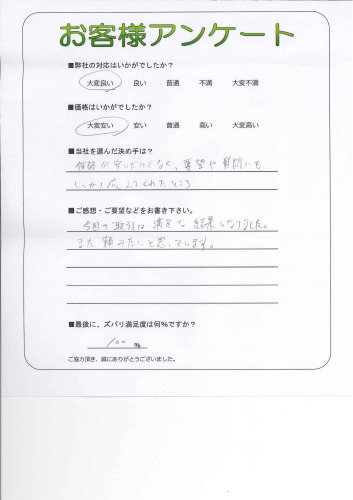 お客様アンケート
■弊社の対応はいかがでしたか?
大変良い 良い 普通 不満 大変不満
■価格はいかがでしたか?
大変安い 安い 普通 高い 大変高い
■当社を選んだ決め手は?
価格が安いだけでなく、要望や質問にも
しっかり応えてくれたところ
■ご感想・ご要望などをお書き下さい。
今回の取引は満足な結果となりました。
また頼みたいと思っています。
■最後に、ズバリ満足度は何%ですか?
100 %
ご協力頂き、誠にありがとうございました。